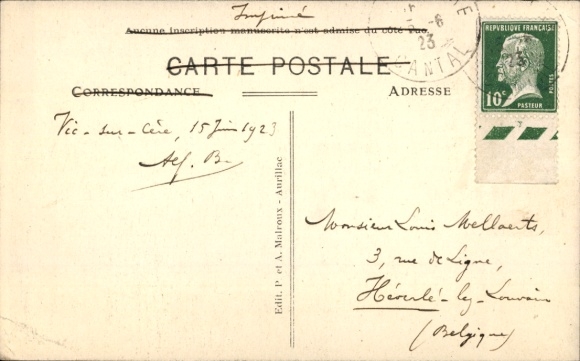 Imprimé
Aucune inscription manuscrite n'est admise du côté vue.
CARTE POSTALE
CORRESPONDANCE
ADRESSE
6
23
CANTAL
REPUBLIQUE FRANÇAISE
10c
POSTES
PASTEUR
Vic-sur-Cère, 15 Juin 1923
Alf.
Edit. P. et A. Malroux - Aurillac
Monsieur Louis Mellaerts,
3, rue de Ligne,
Héverlé-lez-Louvain
(Belgique)